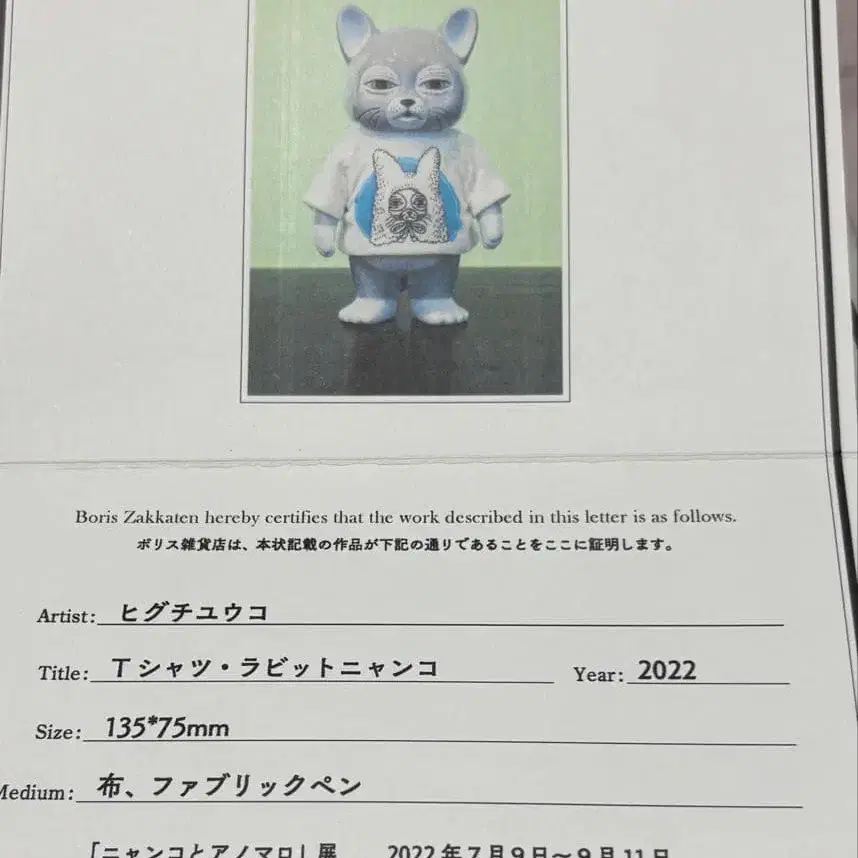 Boris Zakkaten hereby certifies that the work described in this letter is as follows.
ボリス雑貨店は、本状記載の作品が下記の通りであることをここに証明します。
Artist: ヒグチユウコ
Title: Tシャツ・ラビットニャンコ Year: 2022
Size: 135*75mm
Medium: 布、ファブリックペン
「ニャンコとアノマロ」展 2022年7月9日～9月11日